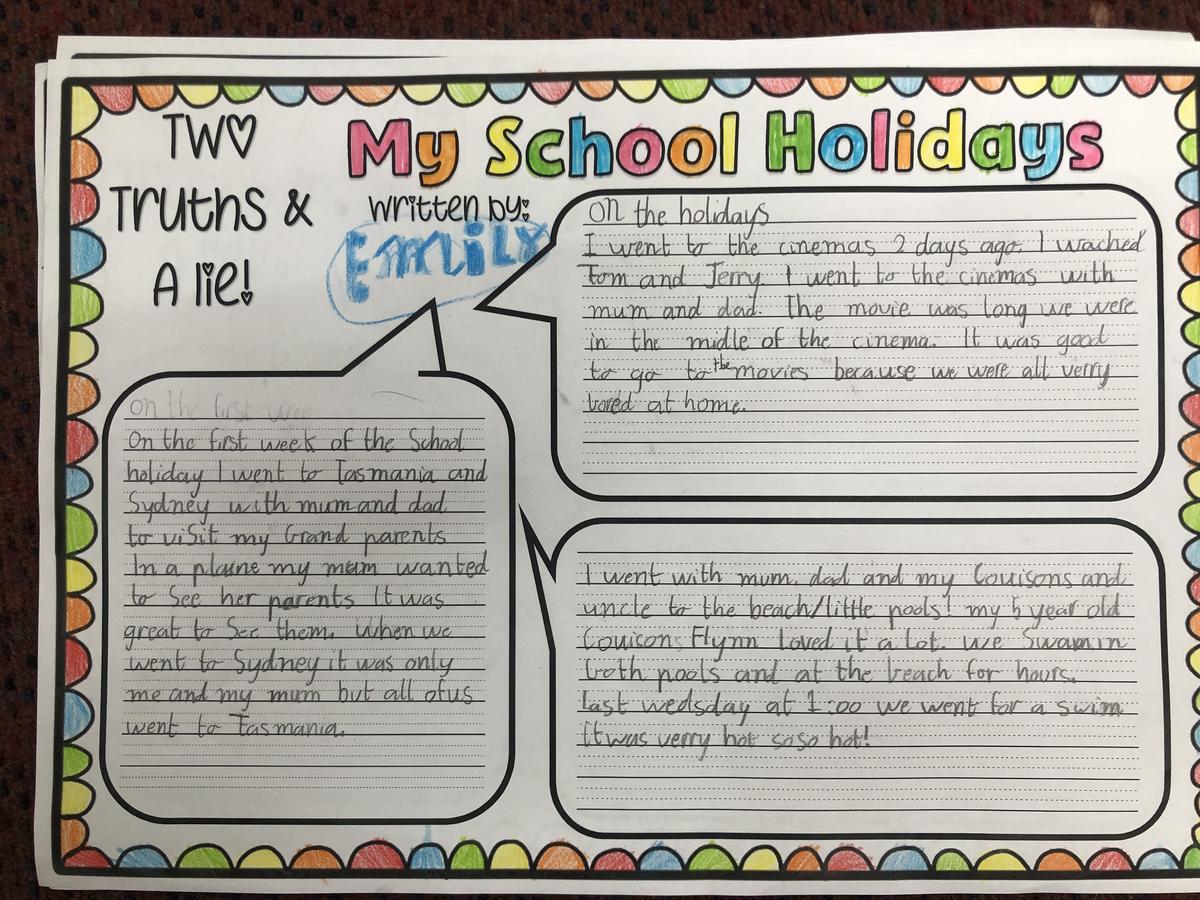 TWO
Truths &
A lie!
My School Holidays
written by:
EMILY
on the holidays
I went to the cinemas 2 days ago. I wached
Tom and Jerry. I went to the cinemas with
mum and dad. The movie was long we were
in the midle of the cinema. It was good
to go to the movies because we were all verry
bored at home.
on the first wee
On the first week of the School
holiday I went to Tasmania and
Sydney with mum and dad
to viSit my Grand parents
In a plaine my mum wanted
to See her parents It was
great to See them. When we
went to Sydney it was only
me and my mum but all of us
went to Tasmania.
I went with mum, dad and my Couisons and
uncle to the beach/little pools! my 5 year old
Couisons Flynn loved it a lot. we Swam in
both pools and at the beach for hours.
Last wedsday at 1:00 we went for a swim
It was verry hot so so hot!